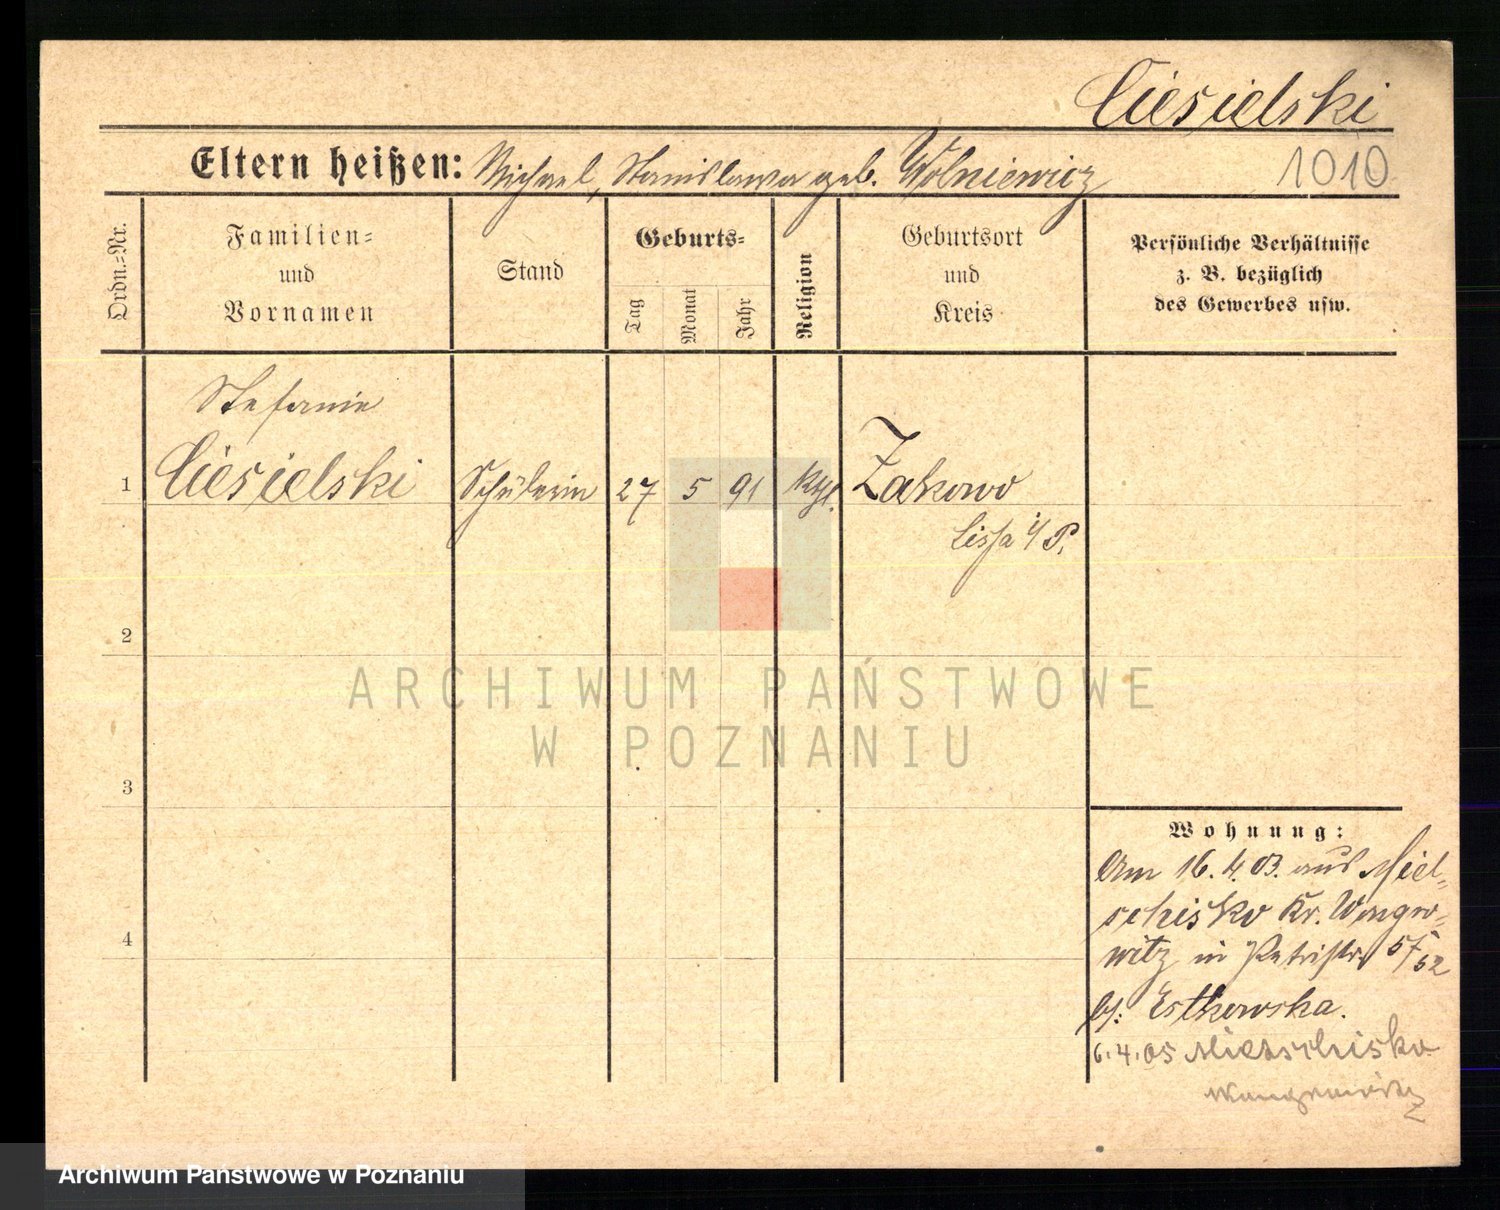 Ciesielski
Eltern heißen: Michael, Stanislawa geb. Wolniewicz
1010
Ordn.-Nr.
Familien-
und
Vornamen
Stand
Geburts-
Tag
Monat
Jahr
Religion
Geburtsort
und
Kreis
Persönliche Verhältnisse
z. B. bezüglich
des Gewerbes usw.
Stefanie
1 Ciesielski Schülerin 27 5 91 kath. Zakowo
Lissa i/P.
2
ARCHIWUM PAŃSTWOWE
W POZNANIU
3
4
Wohnung:
Am 16.4.03. aus Miel-
schisko Kr. Wongro-
witz in Petristr.
b/: Estkowska.
6.4.05 Mietschisko
Wongrowitz
Archiwum Państwowe w Poznaniu